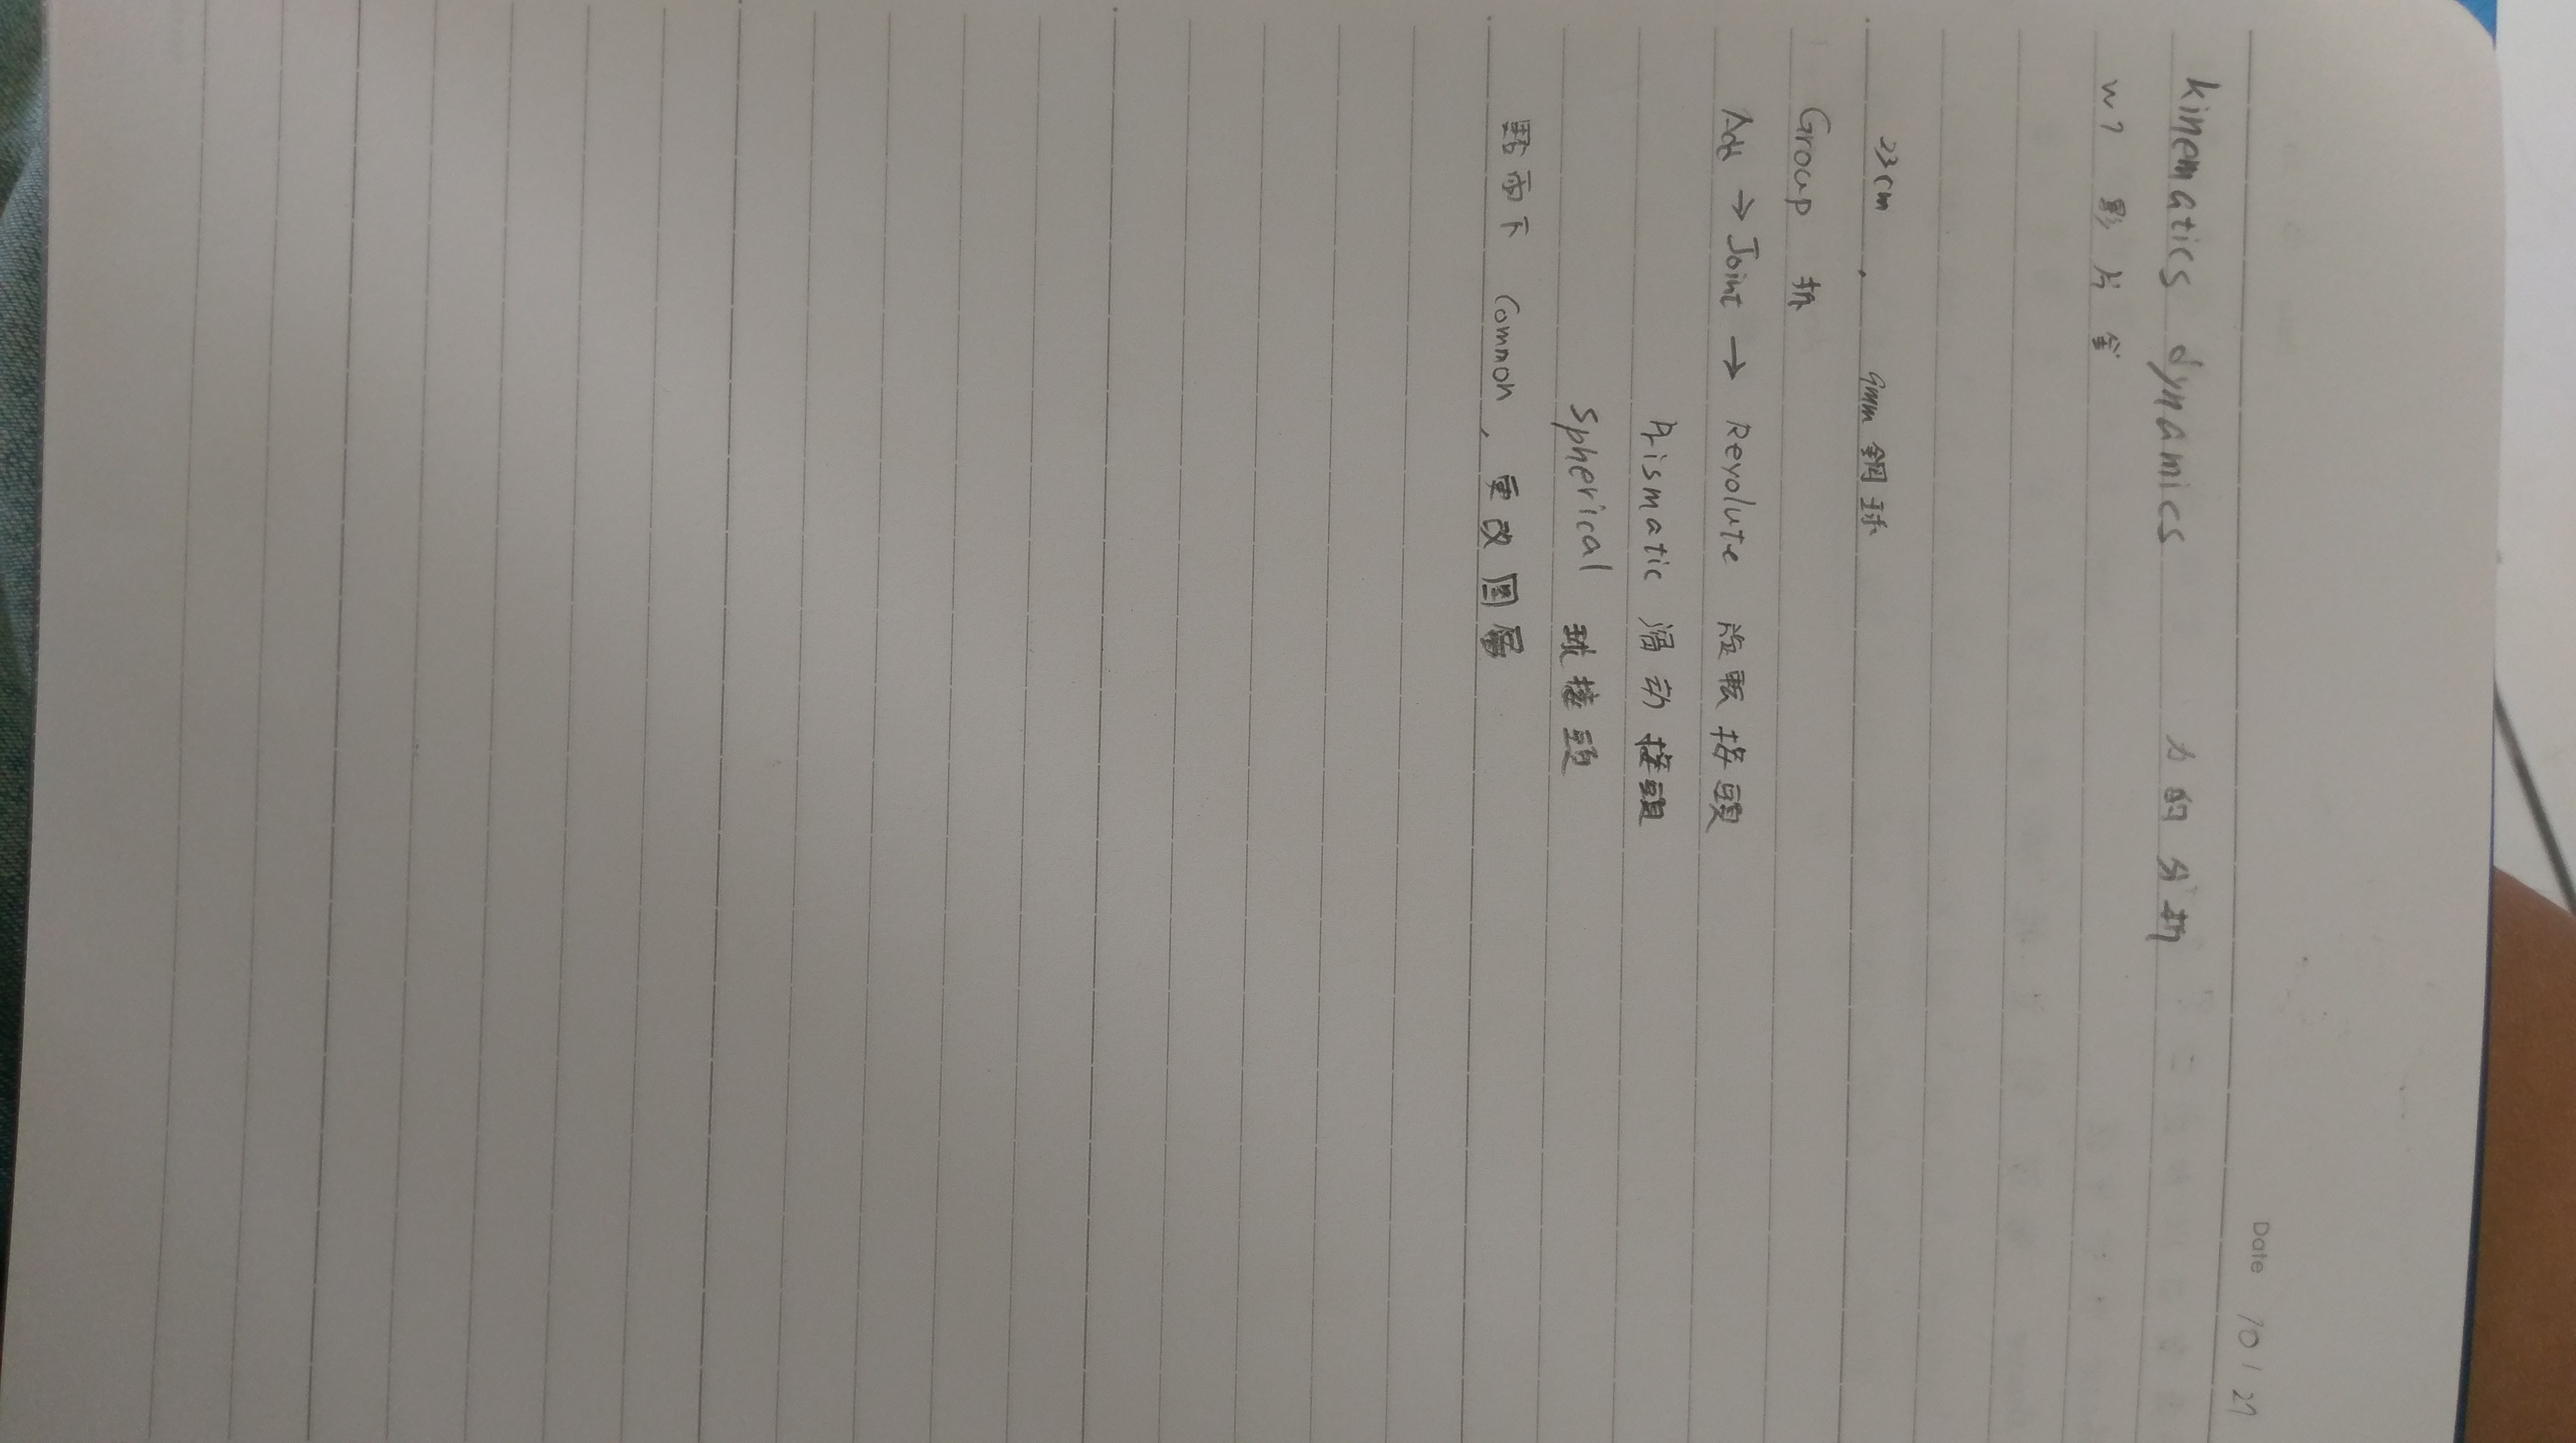 Date 10 / 27
kinematics dynamics 力的分析
w7 影片
23cm , 9mm 鋼球
Group 拆
Add → Joint → Revolute 旋転接頭
Prismatic 滑动接頭
Spherical 球接頭
點兩下 Common, 更改図層